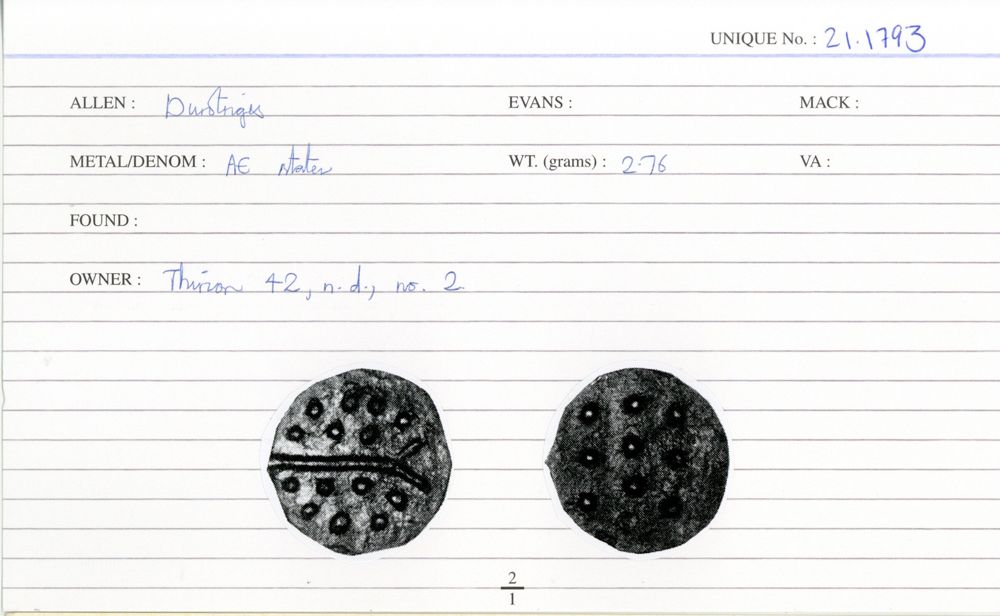 UNIQUE No. : 21.1793
ALLEN : Durotriges EVANS : MACK :
METAL/DENOM : AE stater WT. (grams) : 2.76 VA :
FOUND :
OWNER : Thirion 42, n.d., no. 2
2
1